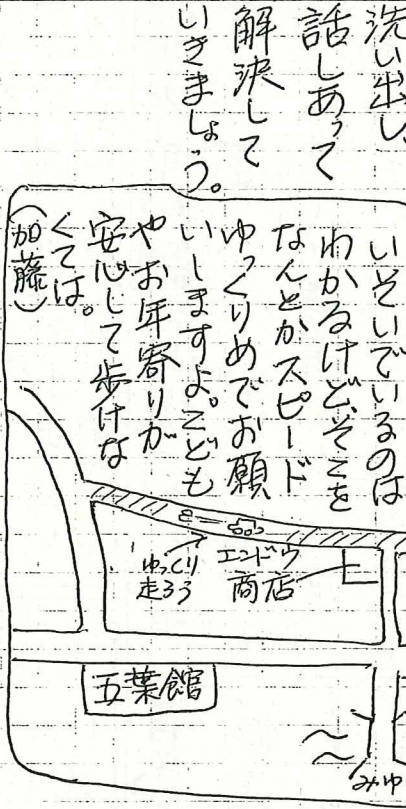 洗い出し、
話しあって
解決して
いきましょう。
いそいでいるのは
わかるけど、そこを
なんとかスピード
ゆっくりめでお願
いしますよ。こども
やお年寄りが
安心して歩けな
くては。
(加藤)
ゆっくり
走ろう
エンドウ
商店
五葉館
みゆ